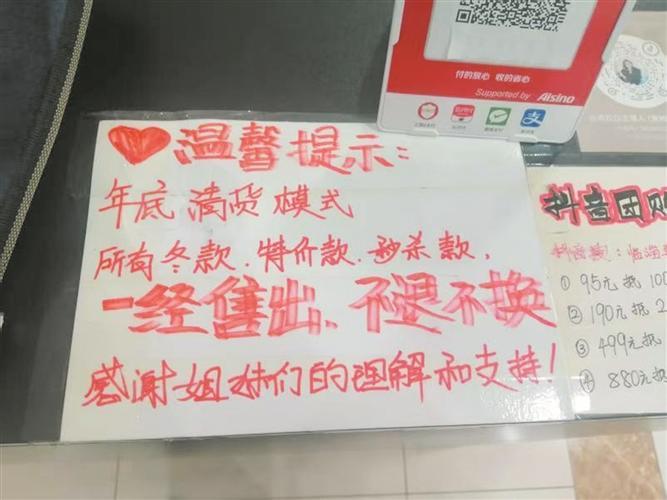 温馨提示:
年底清货模式
所有冬款.特价款.秒杀款,
一经售出、不退不换
感谢姐妹们的理解和支持!
付的放心 收的省心
Supported by Aisino
抖音团购
① 95元抵100
② 190元抵2
③ 499元抵
④ 880元抵